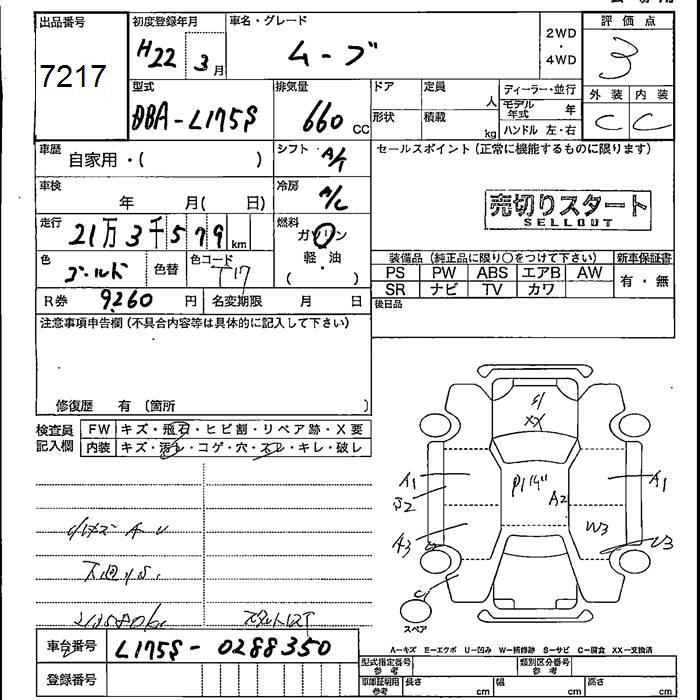 出品番号
7217
初度登録年月
H22 3月
車名・グレード
ムーブ
2WD
・
4WD
評価点
3
型式
DBA-L175S
排気量
660 CC
ドア
定員
人
形状
積載
kg
ディーラー・並行
モデル年式 年
ハンドル 左・右
外装 内装
C C
車歴
自家用・( )
シフト
A/T
セールスポイント(正常に機能するものに限ります)
車検
年 月( 日)
冷房
A/C
売切りスタート
SELLOUT
走行
21万3千579km
燃料
ガソリン
軽・油
( ・ )
色
ゴールド
色替
色コード
T17
装備品(純正品に限り○をつけて下さい)
新車保証書
PS PW ABS エアB AW
有・無
SR ナビ TV カワ
R券 9260円
名変期限 月 日
後日品
注意事項申告欄(不具合内容等は具体的に記入して下さい)
修復歴 有〔箇所 〕
検査員
記入欄
FW キズ・飛石・ヒビ割・リペア跡・X要
内装 キズ・汚レ・コゲ・穴・スレ・キレ・破レ
S/
XX
A1
S2
A3
A2
A1
W3
U3
C1
スペア
A-キズ E-エクボ U-凹み W-補修跡 S-サビ C-腐食 XX-交換済
車台番号
L175S-0288350
登録番号
型式指定番号
参考
類別区分番号
参考
車庫証明用
参考
長さ cm
幅 cm
高さ cm